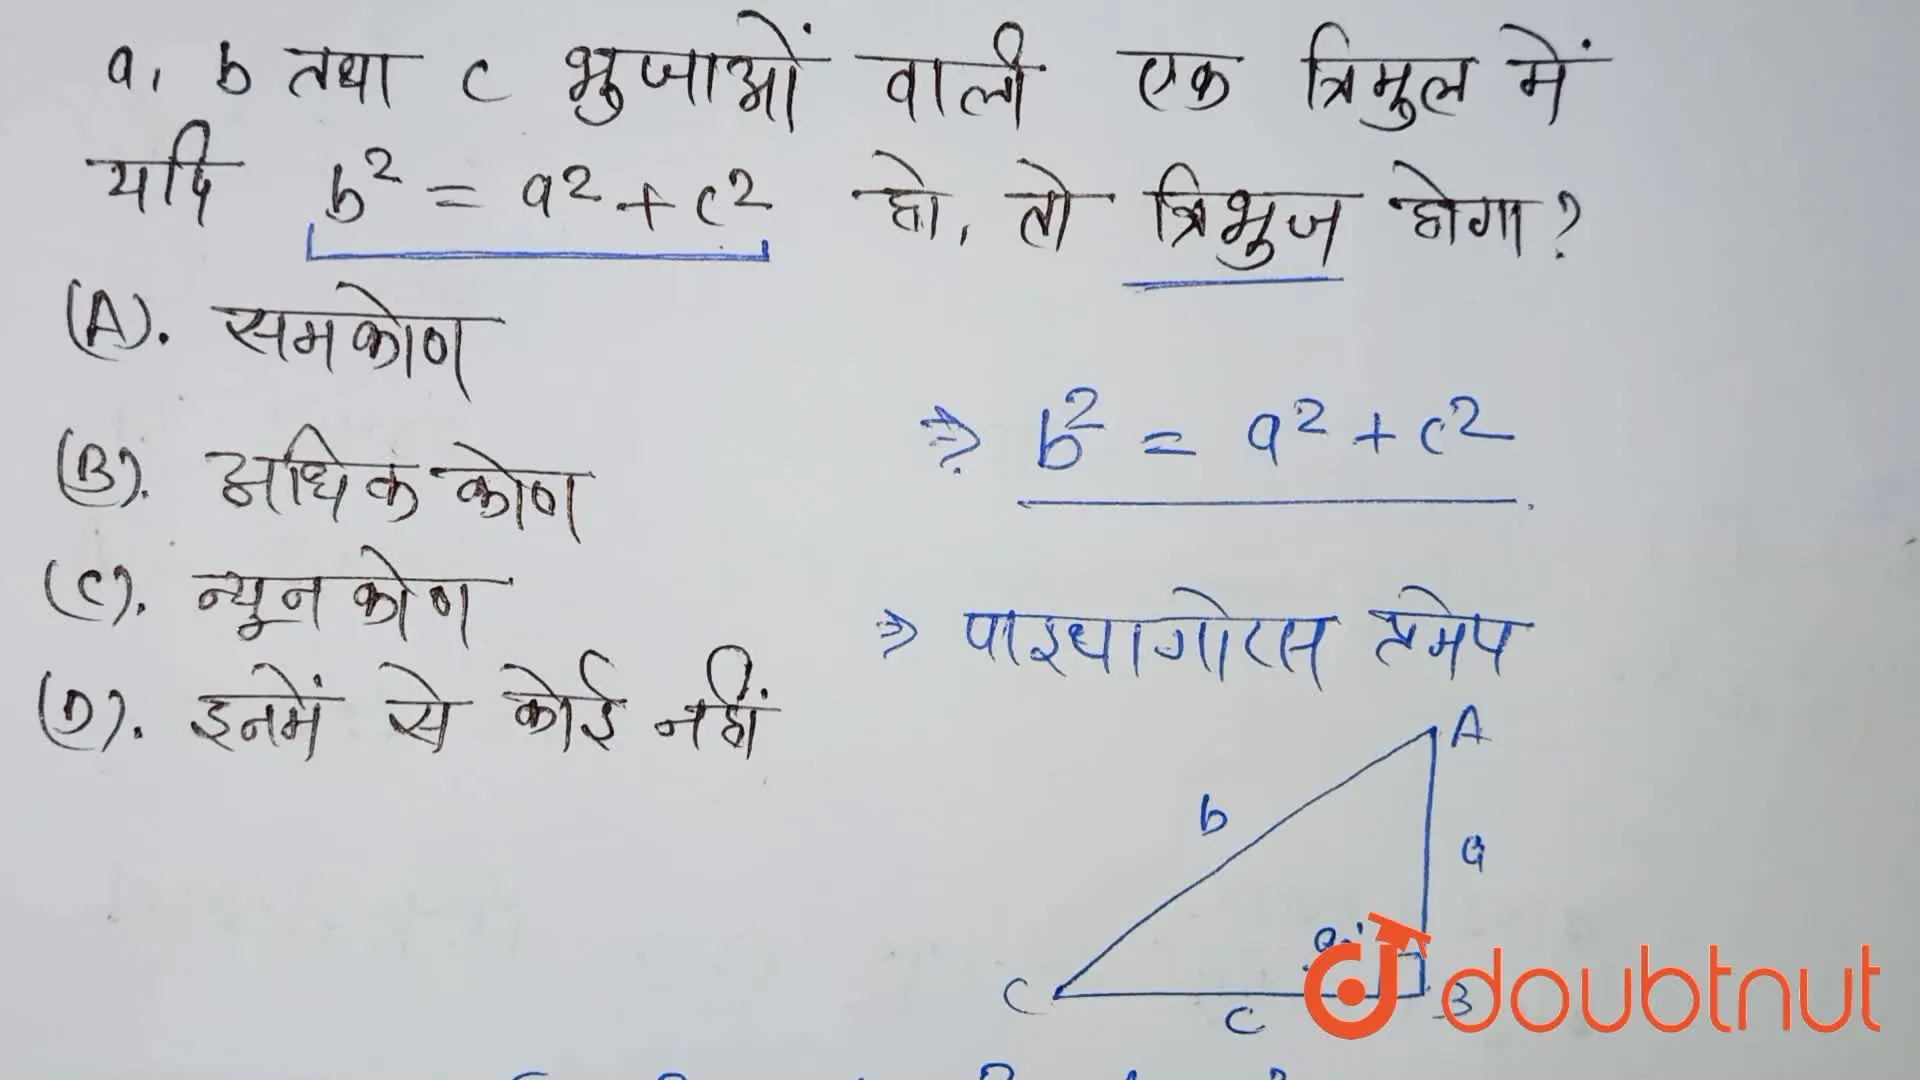 a, b तथा c भुजाओं वाली एक त्रिभुज में
यदि b² = a² + c² हो, तो त्रिभुज होगा?
(A). समकोण
(B). अधिक कोण
(C). न्यून कोण
(D). इनमें से कोई नहीं
⇒ b² = a² + c²
⇒ पाइथागोरस प्रमेय
A
b
a
C
c
B
doubtnut